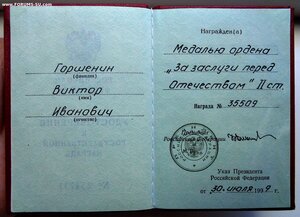 www.FORUMS-SU.com
Горшенин
(фамилия)
Виктор
(имя)
Иванович
(отчество)
Награжден(а)
Медалью ордена
„За заслуги перед
Отечеством" II ст.
Награда № 35509
Президент
Российской Федерации
Указ Президента
Российской Федерации
от 30 июля 1999 г.